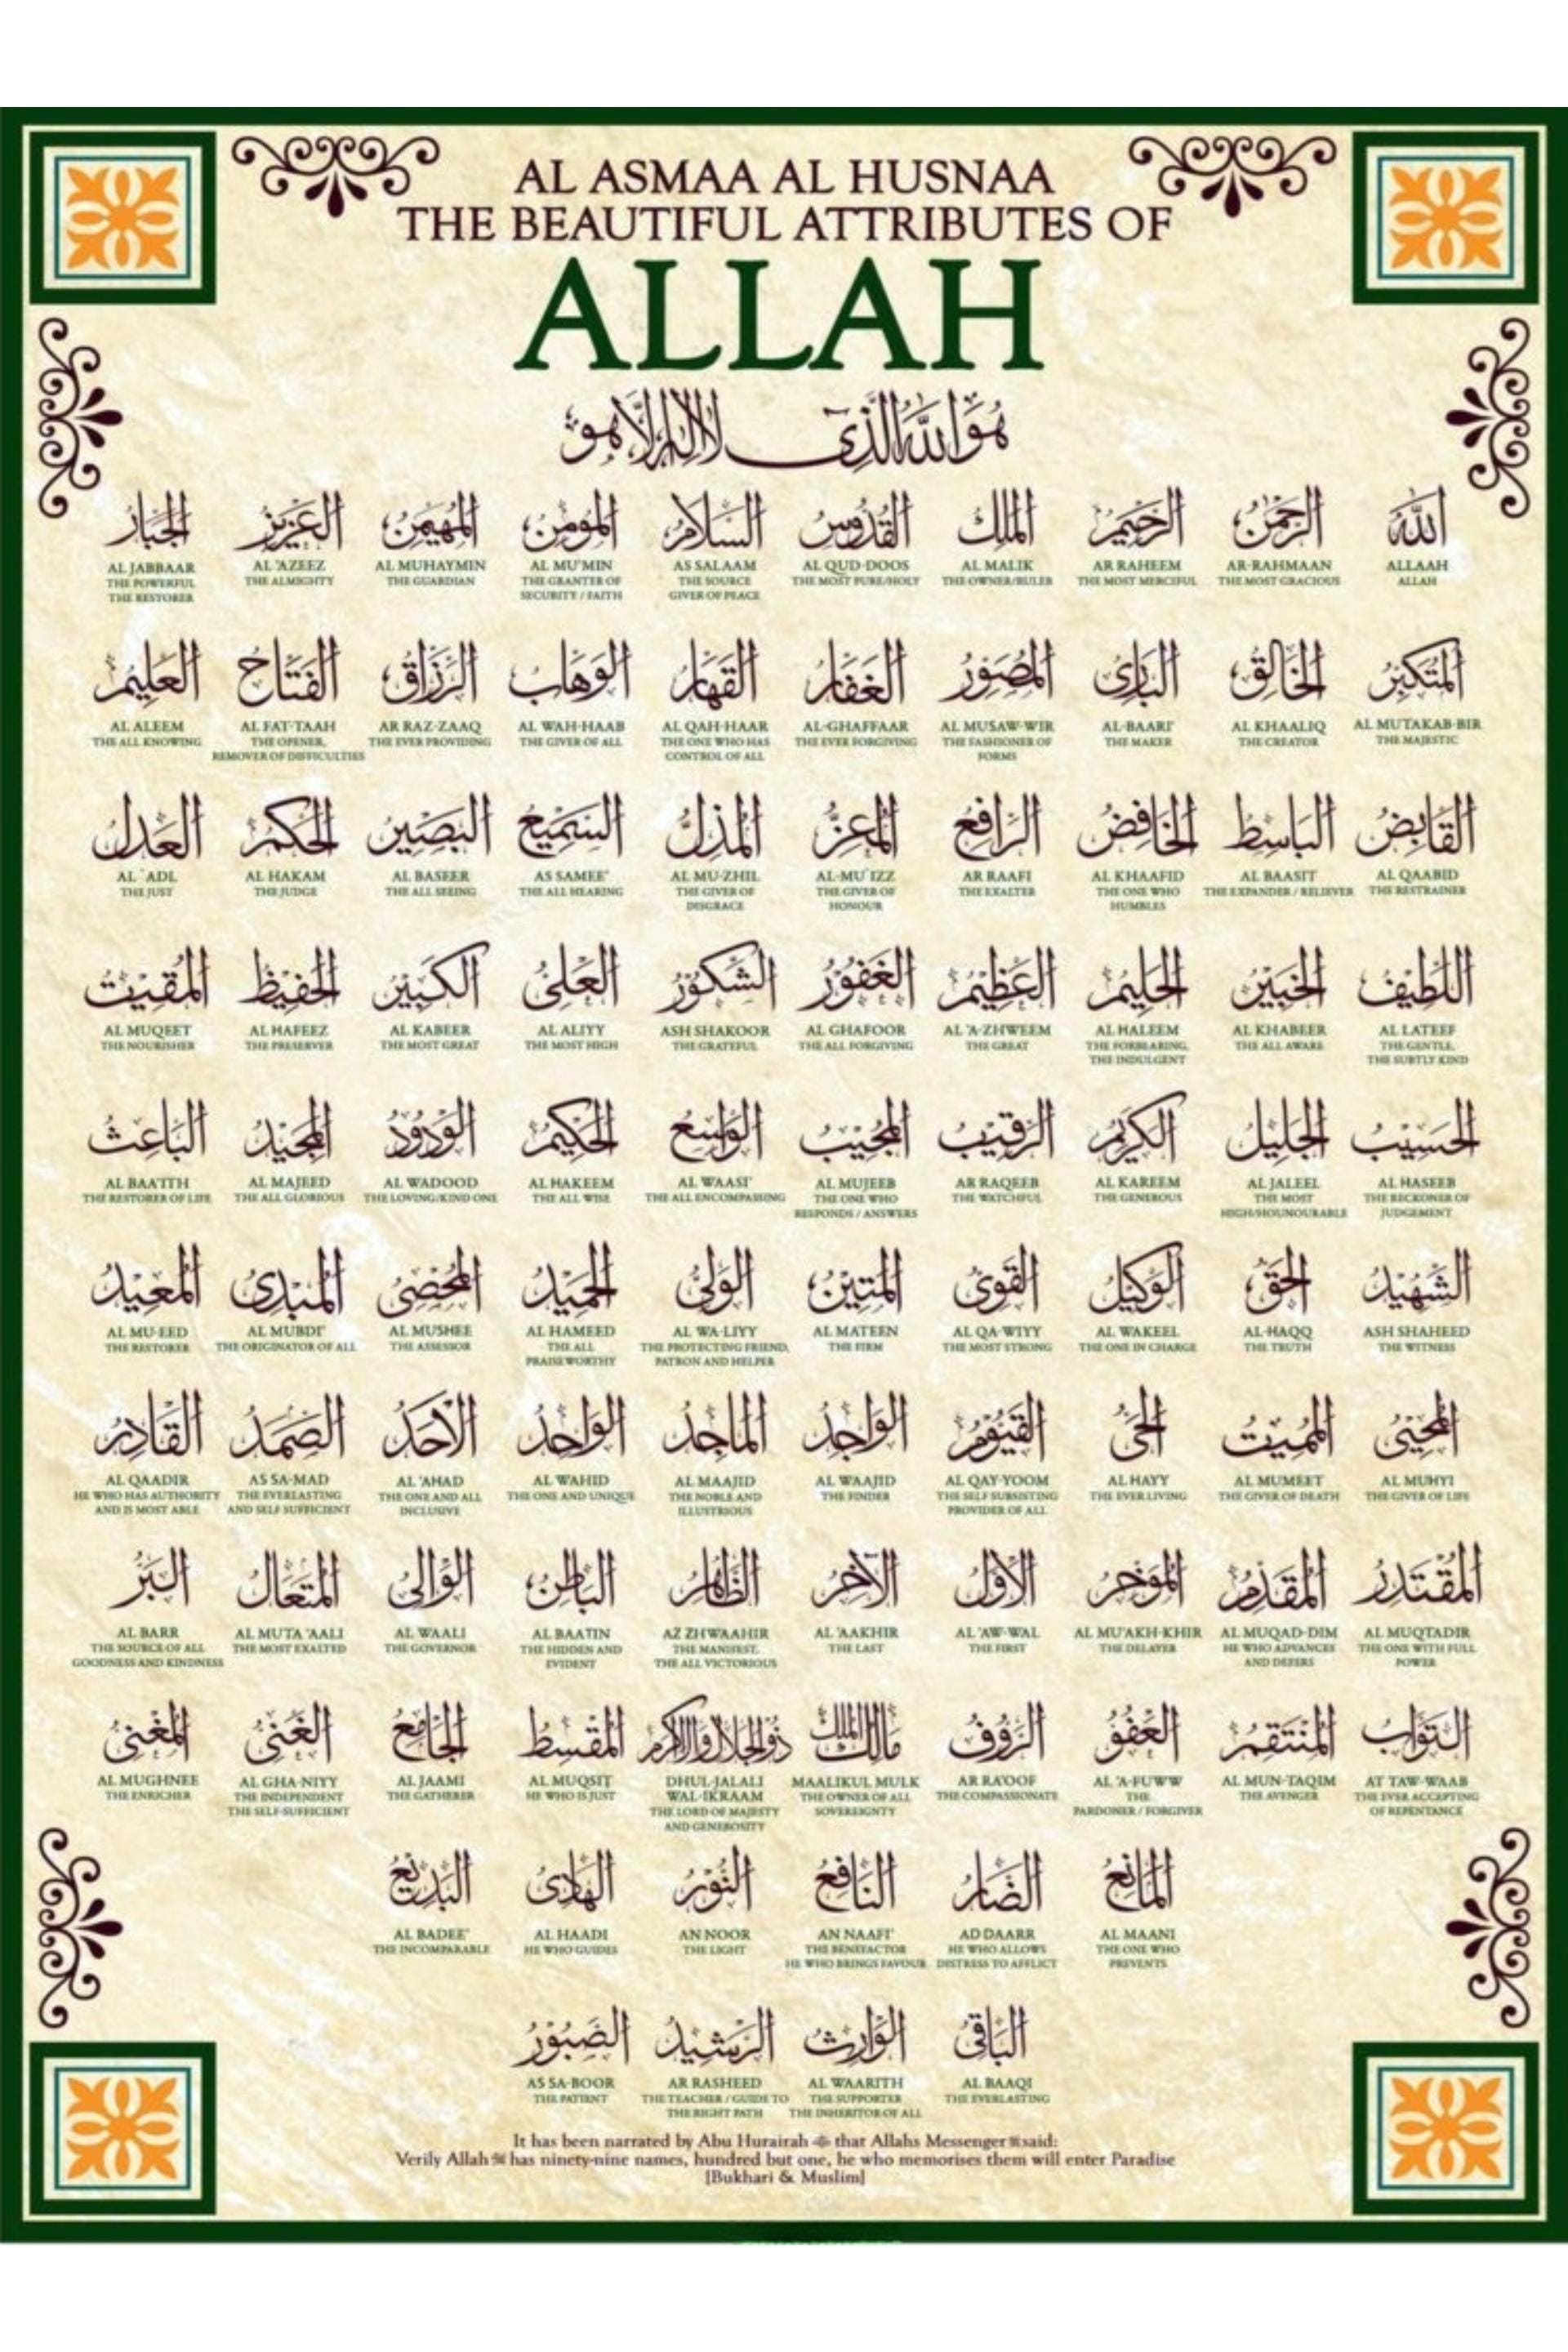 AL ASMAA AL HUSNAA
THE BEAUTIFUL ATTRIBUTES OF
ALLAH
هُوَ اللهُ الَّذِي لَا إِلٰهَ إِلَّا هُوَ
اللهُ
ALLAAH
ALLAH
الرَّحْمٰنُ
AR-RAHMAAN
THE MOST GRACIOUS
الرَّحِيْمُ
AR RAHEEM
THE MOST MERCIFUL
الْمَلِكُ
AL MALIK
THE OWNER/RULER
الْقُدُّوسُ
AL QUD-DOOS
THE MOST PURE/HOLY
السَّلَامُ
AS SALAAM
THE SOURCE
GIVER OF PEACE
الْمُؤْمِنُ
AL MU'MIN
THE GRANTER OF
SECURITY / FAITH
الْمُهَيْمِنُ
AL MUHAYMIN
THE GUARDIAN
الْعَزِيْزُ
AL 'AZEEZ
THE ALMIGHTY
الْجَبَّارُ
AL JABBAAR
THE POWERFUL
THE RESTORER
الْمُتَكَبِّرُ
AL MUTAKAB-BIR
THE MAJESTIC
الْخَالِقُ
AL KHAALIQ
THE CREATOR
الْبَارِئُ
AL-BAARI'
THE MAKER
الْمُصَوِّرُ
AL MUSAW-WIR
THE FASHIONER OF
FORMS
الْغَفَّارُ
AL-GHAFFAAR
THE EVER FORGIVING
الْقَهَّارُ
AL QAH-HAAR
THE ONE WHO HAS
CONTROL OF ALL
الْوَهَّابُ
AL WAH-HAAB
THE GIVER OF ALL
الرَّزَّاقُ
AR RAZ-ZAAQ
THE EVER PROVIDING
الْفَتَّاحُ
AL FAT-TAAH
THE OPENER,
REMOVER OF DIFFICULTIES
الْعَلِيْمُ
AL ALEEM
THE ALL KNOWING
الْقَابِضُ
AL QAABID
THE RESTRAINER
الْبَاسِطُ
AL BAASIT
THE EXPANDER / RELIEVER
الْخَافِضُ
AL KHAAFID
THE ONE WHO
HUMBLES
الرَّافِعُ
AR RAAFI
THE EXALTER
الْمُعِزُّ
AL-MU`IZZ
THE GIVER OF
HONOUR
الْمُذِلُّ
AL MU-ZHIL
THE GIVER OF
DISGRACE
السَّمِيْعُ
AS SAMEE'
THE ALL HEARING
الْبَصِيْرُ
AL BASEER
THE ALL SEEING
الْحَكَمُ
AL HAKAM
THE JUDGE
الْعَدْلُ
AL `ADL
THE JUST
اللَّطِيْفُ
AL LATEEF
THE GENTLE,
THE SUBTLY KIND
الْخَبِيْرُ
AL KHABEER
THE ALL AWARE
الْحَلِيْمُ
AL HALEEM
THE FORBEARING,
THE INDULGENT
الْعَظِيْمُ
AL 'A-ZHWEEM
THE GREAT
الْغَفُوْرُ
AL GHAFOOR
THE ALL FORGIVING
الشَّكُوْرُ
ASH SHAKOOR
THE GRATEFUL
الْعَلِيُّ
AL ALIYY
THE MOST HIGH
الْكَبِيْرُ
AL KABEER
THE MOST GREAT
الْحَفِيْظُ
AL HAFEEZ
THE PRESERVER
الْمُقِيْتُ
AL MUQEET
THE NOURISHER
الْحَسِيْبُ
AL HASEEB
THE RECKONER OF
JUDGEMENT
الْجَلِيْلُ
AL JALEEL
THE MOST
HIGH/HOUNOURABLE
الْكَرِيْمُ
AL KAREEM
THE GENEROUS
الرَّقِيْبُ
AR RAQEEB
THE WATCHFUL
الْمُجِيْبُ
AL MUJEEB
THE ONE WHO
RESPONDS / ANSWERS
الْوَاسِعُ
AL WAASI'
THE ALL ENCOMPASSING
الْحَكِيْمُ
AL HAKEEM
THE ALL WISE
الْوَدُوْدُ
AL WADOOD
THE LOVING/KIND ONE
الْمَجِيْدُ
AL MAJEED
THE ALL GLORIOUS
الْبَاعِثُ
AL BAA'ITH
THE RESTORER OF LIFE
الشَّهِيْدُ
ASH SHAHEED
THE WITNESS
الْحَقُّ
AL-HAQQ
THE TRUTH
الْوَكِيْلُ
AL WAKEEL
THE ONE IN CHARGE
الْقَوِيُّ
AL QA-WIYY
THE MOST STRONG
الْمَتِيْنُ
AL MATEEN
THE FIRM
الْوَلِيُّ
AL WA-LIYY
THE PROTECTING FRIEND,
PATRON AND HELPER
الْحَمِيْدُ
AL HAMEED
THE ALL
PRAISEWORTHY
الْمُحْصِي
AL MUSHEE
THE ASSESSOR
الْمُبْدِئُ
AL MUBDI'
THE ORIGINATOR OF ALL
الْمُعِيْدُ
AL MU-EED
THE RESTORER
الْمُحْيِي
AL MUHYI
THE GIVER OF LIFE
الْمُمِيْتُ
AL MUMEET
THE GIVER OF DEATH
الْحَيُّ
AL HAYY
THE EVER LIVING
الْقَيُّوْمُ
AL QAY-YOOM
THE SELF SUBSISTING
PROVIDER OF ALL
الْوَاجِدُ
AL WAAJID
THE FINDER
الْمَاجِدُ
AL MAAJID
THE NOBLE AND
ILLUSTRIOUS
الْوَاحِدُ
AL WAHID
THE ONE AND UNIQUE
الْأَحَدُ
AL 'AHAD
THE ONE AND ALL
INCLUSIVE
الصَّمَدُ
AS SA-MAD
THE EVERLASTING
AND SELF SUFFICIENT
الْقَادِرُ
AL QAADIR
HE WHO HAS AUTHORITY
AND IS MOST ABLE
الْمُقْتَدِرُ
AL MUQTADIR
THE ONE WITH FULL
POWER
الْمُقَدِّمُ
AL MUQAD-DIM
HE WHO ADVANCES
AND DEFERS
الْمُؤَخِّرُ
AL MU'AKH-KHIR
THE DELAYER
الْأَوَّلُ
AL 'AW-WAL
THE FIRST
الْآخِرُ
AL 'AAKHIR
THE LAST
الظَّاهِرُ
AZ ZHWAAHIR
THE MANIFEST,
THE ALL VICTORIOUS
الْبَاطِنُ
AL BAATIN
THE HIDDEN AND
EVIDENT
الْوَالِي
AL WAALI
THE GOVERNOR
الْمُتَعَالُ
AL MUTA 'AALI
THE MOST EXALTED
الْبَرُّ
AL BARR
THE SOURCE OF ALL
GOODNESS AND KINDNESS
التَّوَّابُ
AT TAW-WAAB
THE EVER ACCEPTING
OF REPENTANCE
الْمُنْتَقِمُ
AL MUN-TAQIM
THE AVENGER
الْعَفُوُّ
AL 'A-FUWW
THE
PARDONER / FORGIVER
الرَّؤُوْفُ
AR RA'OOF
THE COMPASSIONATE
مَالِكُ الْمُلْكِ
MAALIKUL MULK
THE OWNER OF ALL
SOVEREIGNTY
ذُو الْجَلَالِ وَالْإِكْرَامِ
DHUL-JALALI
WAL-IKRAAM
THE LORD OF MAJESTY
AND GENEROSITY
الْمُقْسِطُ
AL MUQSIT
HE WHO IS JUST
الْجَامِعُ
AL JAAMI
THE GATHERER
الْغَنِيُّ
AL GHA-NIYY
THE INDEPENDENT
THE SELF-SUFFICIENT
الْمُغْنِي
AL MUGHNEE
THE ENRICHER
الْمَانِعُ
AL MAANI
THE ONE WHO
PREVENTS
الضَّارُّ
AD DAARR
HE WHO ALLOWS
DISTRESS TO AFFLICT
النَّافِعُ
AN NAAFI'
THE BENEFACTOR
HE WHO BRINGS FAVOUR
النُّوْرُ
AN NOOR
THE LIGHT
الْهَادِي
AL HAADI
HE WHO GUIDES
الْبَدِيْعُ
AL BADEE'
THE INCOMPARABLE
الْبَاقِي
AL BAAQI
THE EVERLASTING
الْوَارِثُ
AL WAARITH
THE SUPPORTER
THE INHERITOR OF ALL
الرَّشِيْدُ
AR RASHEED
THE TEACHER / GUIDE TO
THE RIGHT PATH
الصَّبُوْرُ
AS SA-BOOR
THE PATIENT
It has been narrated by Abu Hurairah that Allahs Messenger ﷺ said:
Verily Allah has ninety-nine names, hundred but one, he who memorises them will enter Paradise
[Bukhari & Muslim]